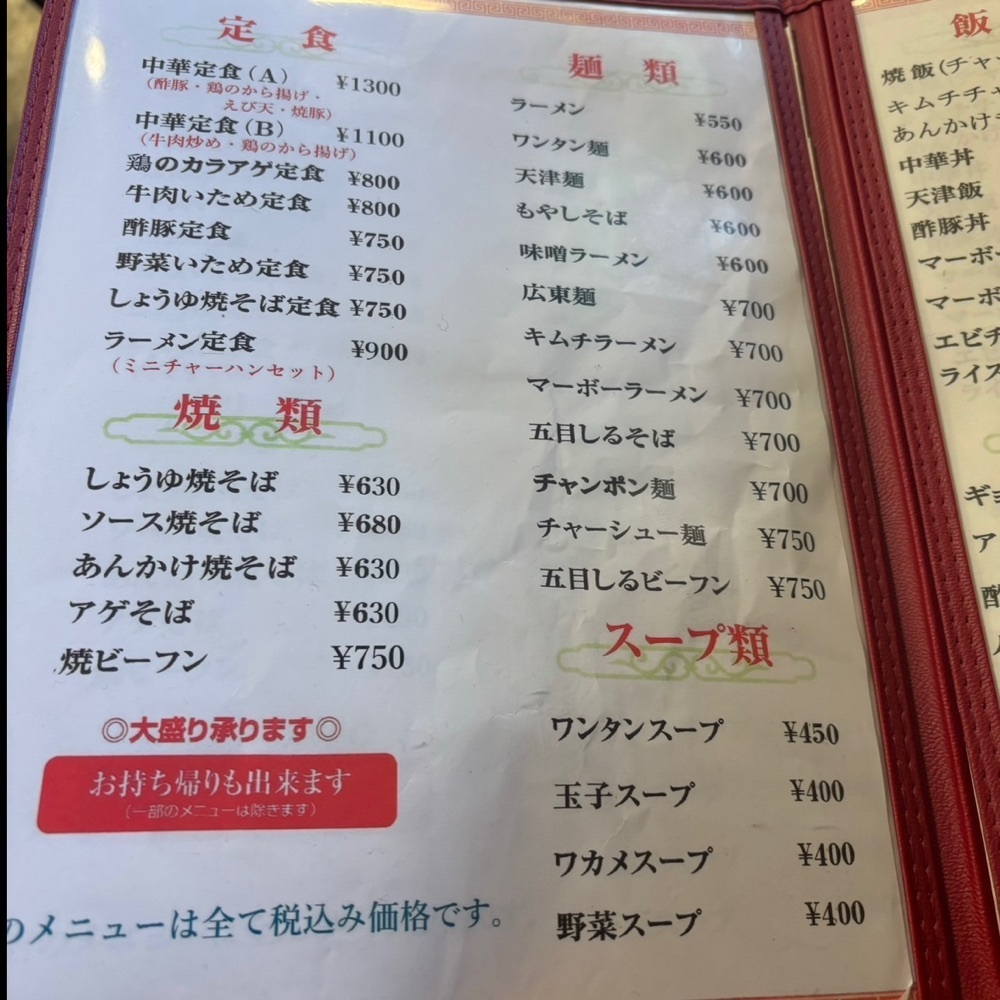 定 食
中華定食(A) ¥1300
(酢豚・鶏のから揚げ・
えび天・焼豚)
中華定食(B) ¥1100
(牛肉炒め・鶏のから揚げ)
鶏のカラアゲ定食 ¥800
牛肉いため定食 ¥800
酢豚定食 ¥750
野菜いため定食 ¥750
しょうゆ焼そば定食 ¥750
ラーメン定食 ¥900
(ミニチャーハンセット)
焼 類
しょうゆ焼そば ¥630
ソース焼そば ¥680
あんかけ焼そば ¥630
アゲそば ¥630
焼ビーフン ¥750
◎大盛り承ります◎
お持ち帰りも出来ます
(一部のメニューは除きます)
のメニューは全て税込み価格です。
麺 類
ラーメン ¥550
ワンタン麺 ¥600
天津麺 ¥600
もやしそば ¥600
味噌ラーメン ¥600
広東麺 ¥700
キムチラーメン ¥700
マーボーラーメン ¥700
五目しるそば ¥700
チャンポン麺 ¥700
チャーシュー麺 ¥750
五目しるビーフン ¥750
スープ類
ワンタンスープ ¥450
玉子スープ ¥400
ワカメスープ ¥400
野菜スープ ¥400
飯
焼飯(チャン
キムチチャ
あんかけ
中華丼
天津飯
酢豚丼
マーボー
マーボ
エビチ
ライス
ギョ
ア
酢